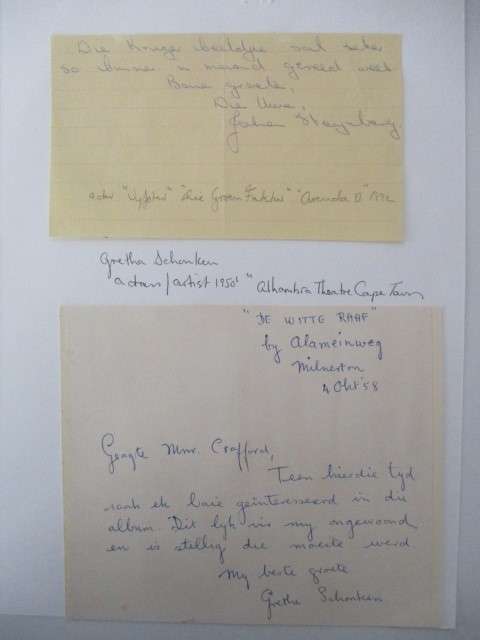 Die Kruger beeldjie sal seker
so binne 'n maand gereed wees
Baie groete,
Die Uwe,
Johan Steynberg
actor "Die Groen Faktor" "Arende II" 1992
Gretha Schonken
actress/artist 1950' "Alhambra Theatre Cape Town
"DE WITTE RAAF"
by Alameinweg
Milnerton
4 Okt '58
Geagte Mnr. Crafford,
Teen hierdie tyd
raak ek baie geïnteresseerd in die
album. Dit lyk vir my ongewoond
en is stellig die moeite werd
My beste groete
Gretha Schonken